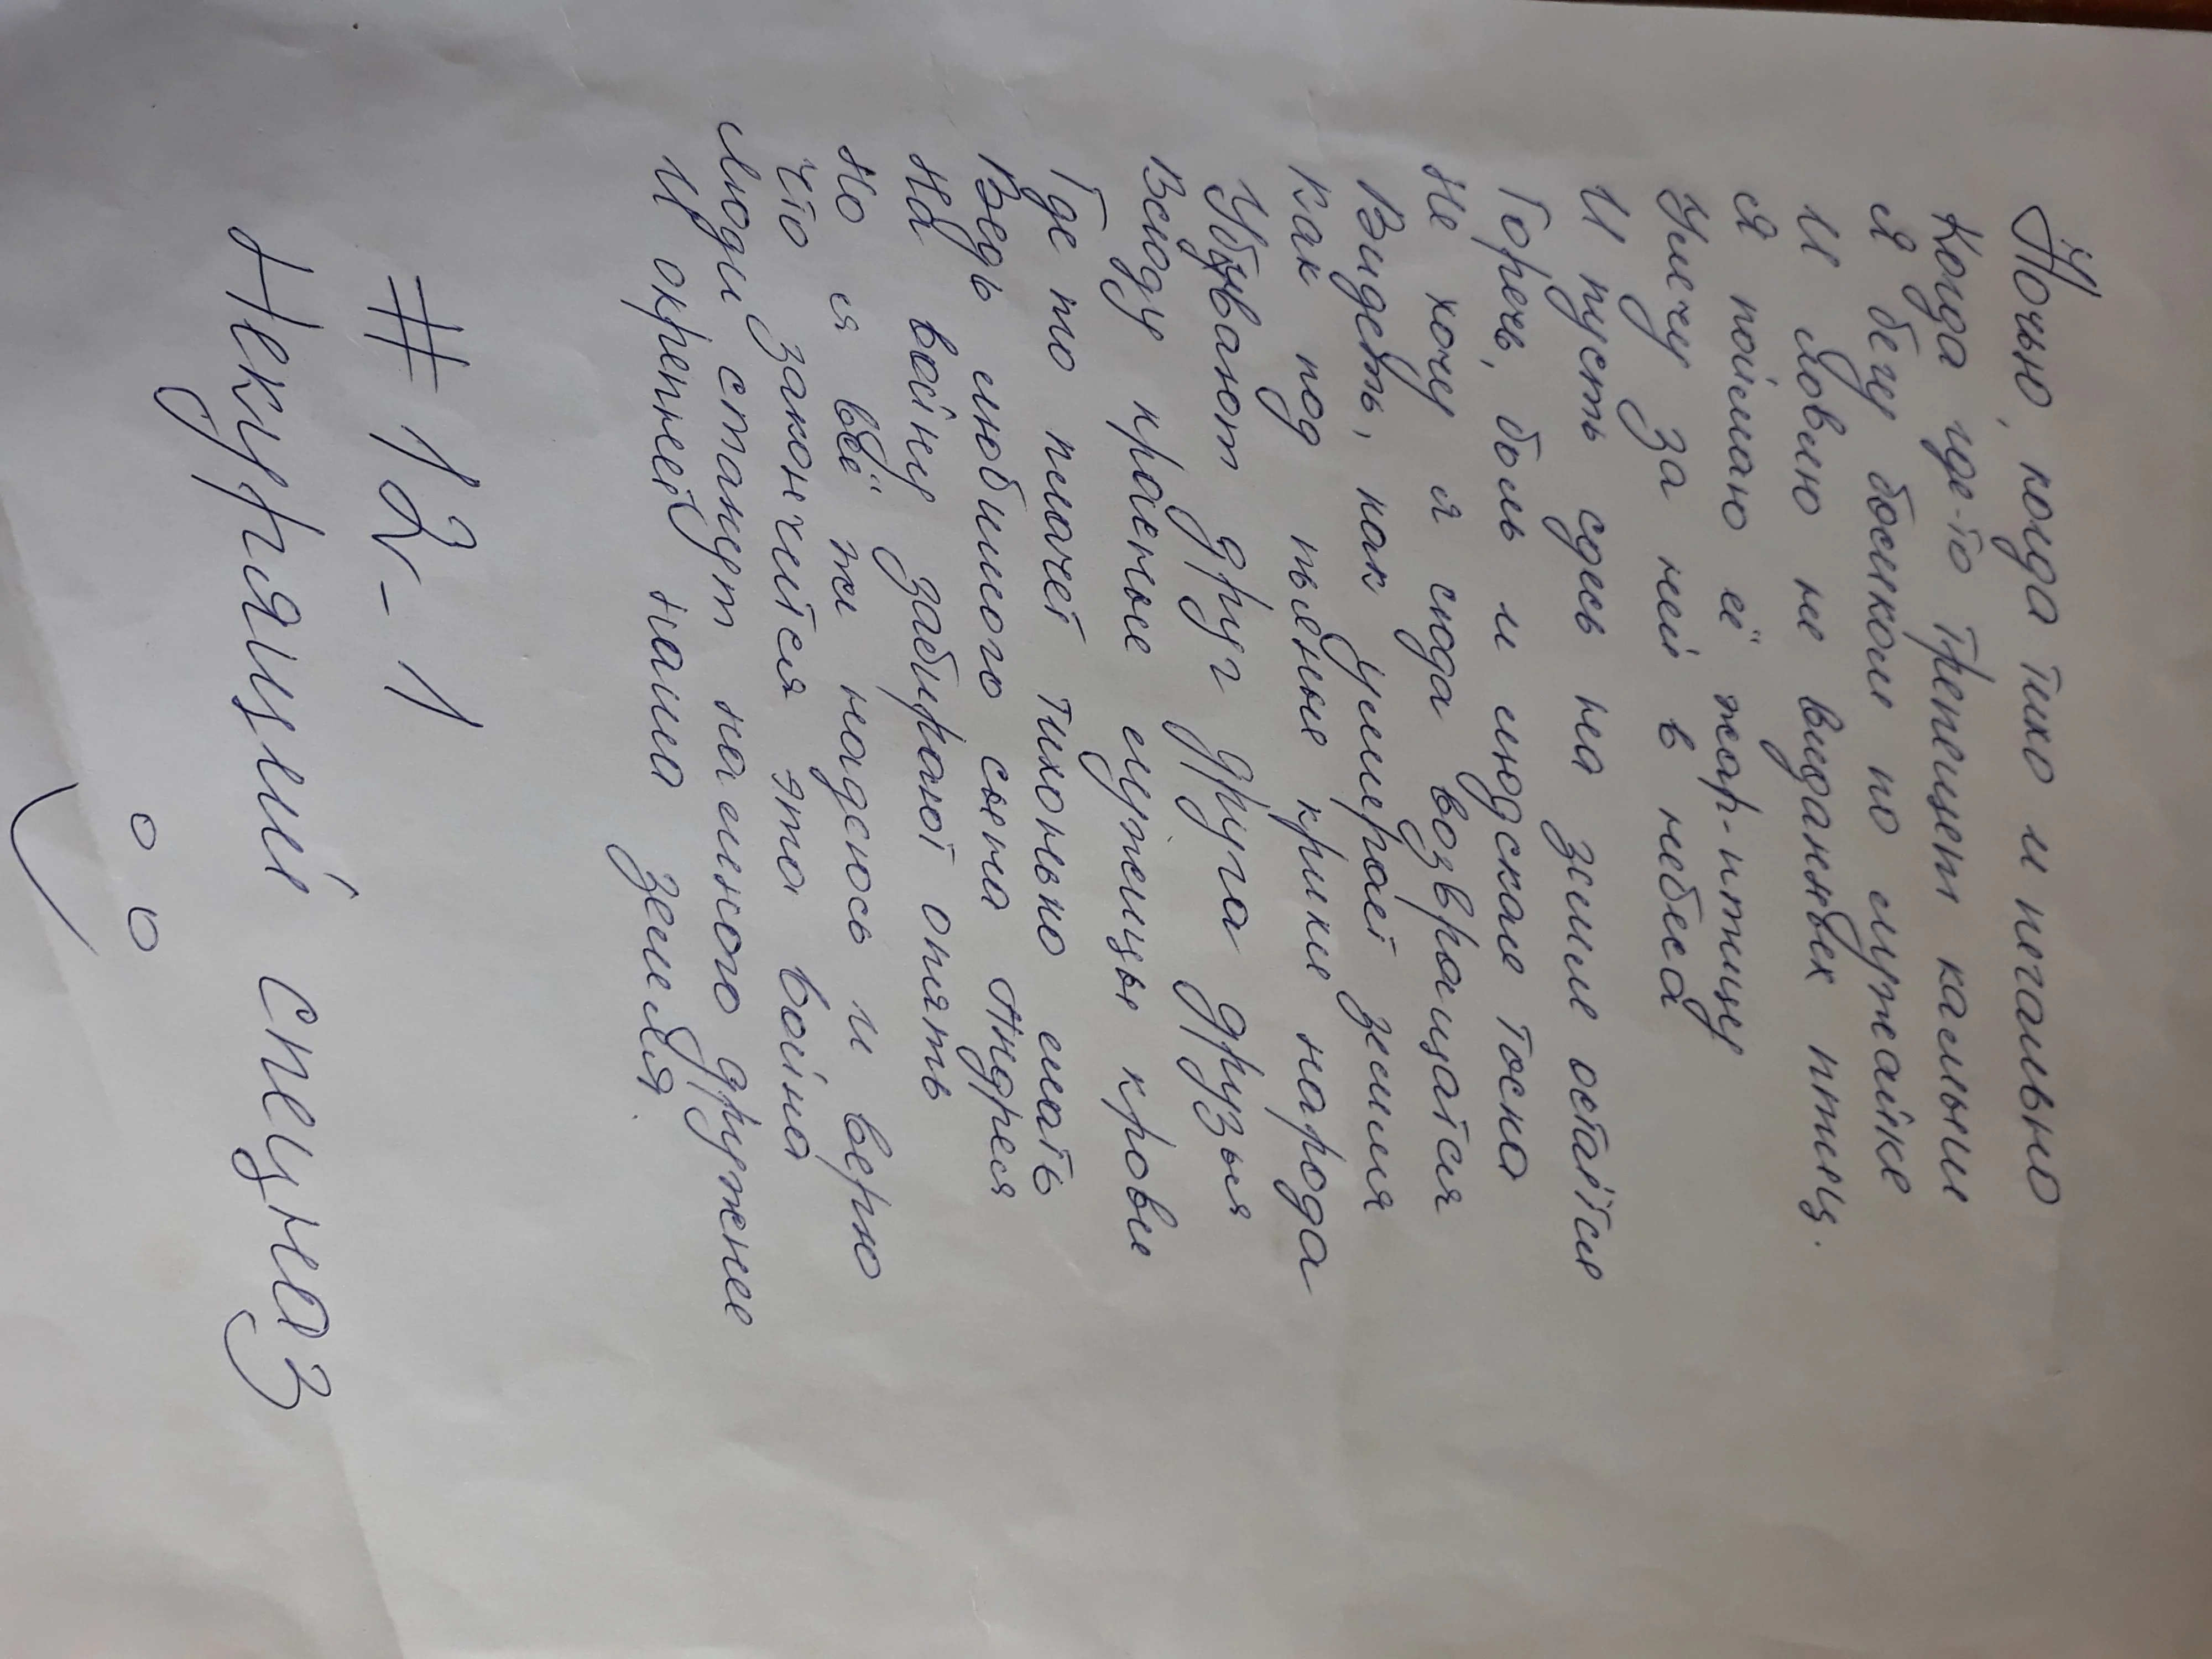 Ночью, когда тихо и печально
Когда где-то трепещет камыши
Я бегу босиком по лужайке
И ловлю не виданных птиц.
Я поймаю её жар-птицу
Улечу за ней в небеса
И пусть сдесь на земле остаётся
Горечь, боль и людская тоска
Не хочу я сюда возвращатся
Видеть, как умирает земля
Как под пьяные крики народа
Убивают друг друга друзья
Всюду красные лужицы крови
Где то плачет тихонько мать
Ведь любимого сына Андрея
На войну забирают опять
Но я всё же надеюсь и верю
Что закончится эта война
Люди станут намного дружнее
И окрепнет наша земля.
#12-1
Некурящий спецназ